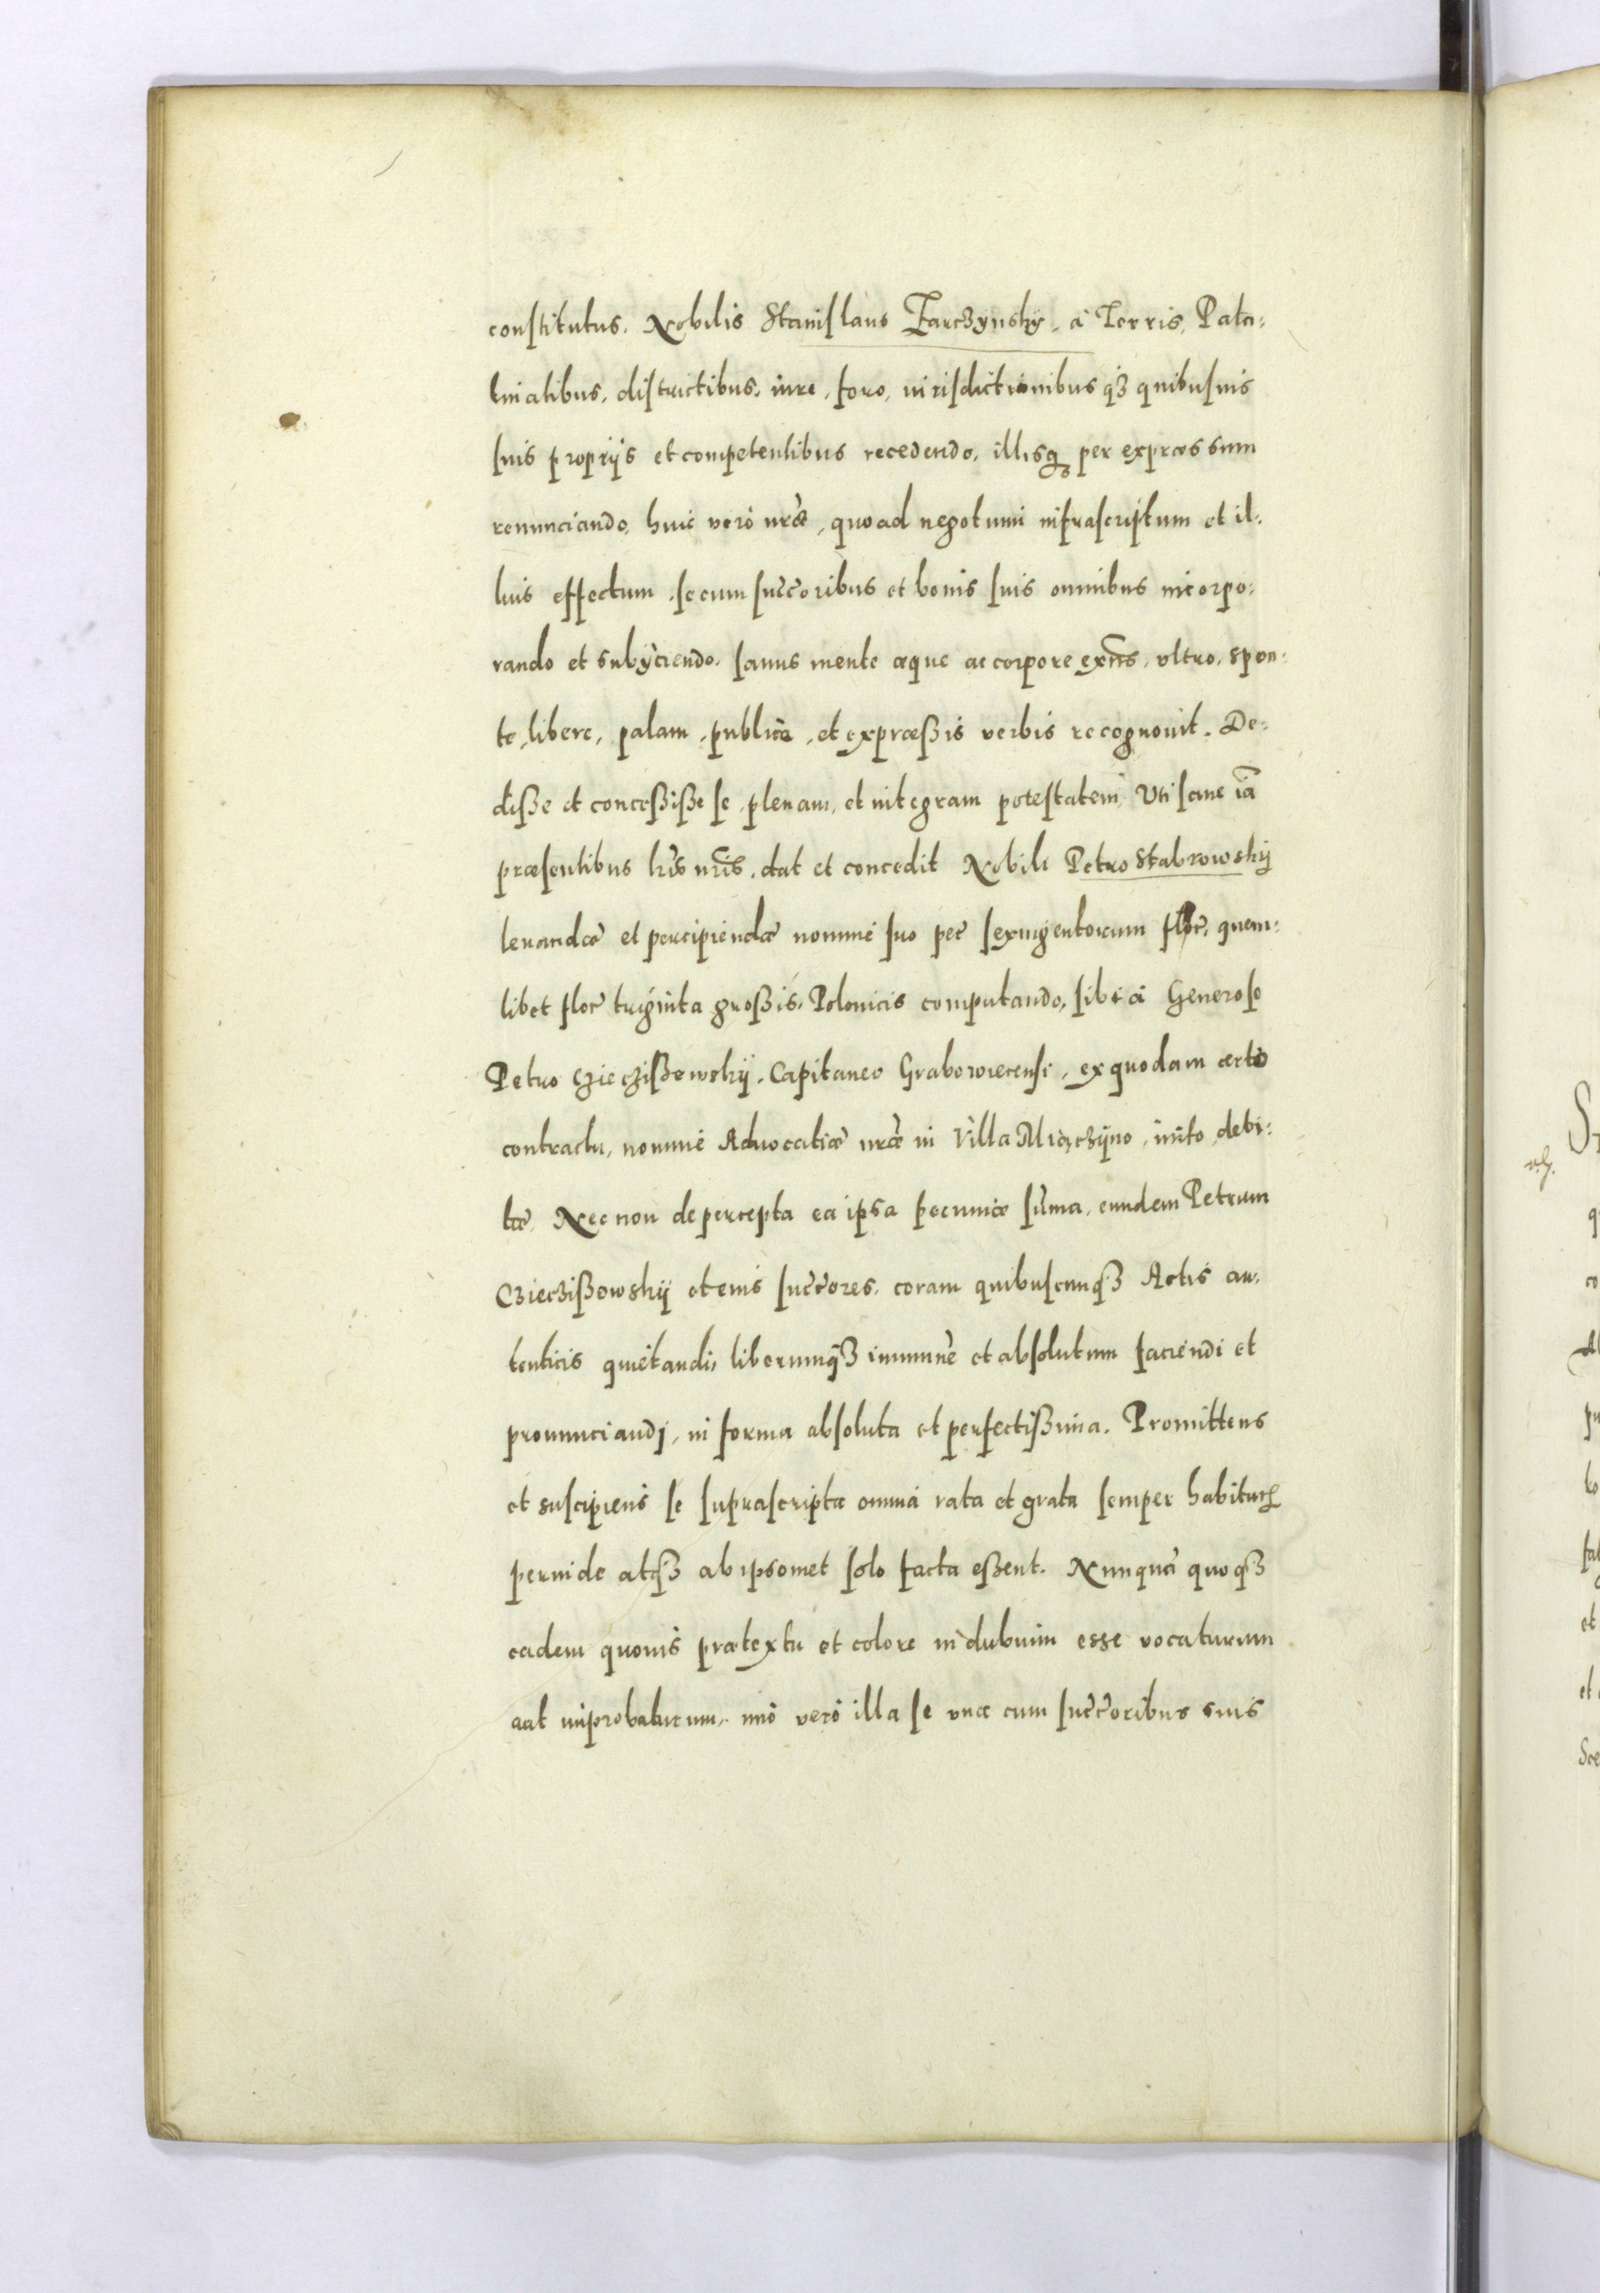 constitutus. Nobilis Stanislaus Tarczynsky, à Terris, Pala-
tinatibus, districtibus, iure, foro, iurisdictionibusq₃ quibusuis
suis proprijs et competentibus recedendo, illisq₃ per expræssum
renunciando, huic verò nr̃æ, quo ad negotium infrascriptum et il-
lius effectum, se cum succ̃oribus et bonis suis omnibus incorpo-
rando et subijciendo, sanus mente æque ac corpore exñs, vltro, spon-
te, libere, palam, publicè, et expræßis verbis recognouit. De-
disse et conceßiße se, plenam, et integram potestatem, Uti sane iã
præsentibus lr̃is nr̃is, dat et concedit Nobili Petro Stabrowskij
leuandæ et percipiendæ nomine suo pec̃ sexingentorum flor̃, quem-
libet flor̃ triginta großis, Polonicis computando, sibi à Generoso
Petro Cziecziszowskij, Capitaneo Grabowiecensi, ex quodam certo
contractu, nomine Aduocatiæ nr̃æ in Villa Miączyno, inito, debi-
tæ, Nec non de percepta ea ipsa pecuniæ sum̃a, eundem Petrum
Cziecziszowskij et eius succ̃ores, coram quibuscunq₃ Actis au-
tenticis quietandi, liberumq₃ immunẽ et absolutum faciendi et
pronunciandj, in forma absoluta et perfectißima. Promittens
et suscipiens se suprascripta omnia rata et grata semper habitur̃
perinde atq₃ ab ipsomet solo facta eßent. Nunquã quoq₃
eadem quouis prætextu et colore in dubium esse vocaturum
aut improbaturum, imò verò illa se vna cum succ̃oribus suis